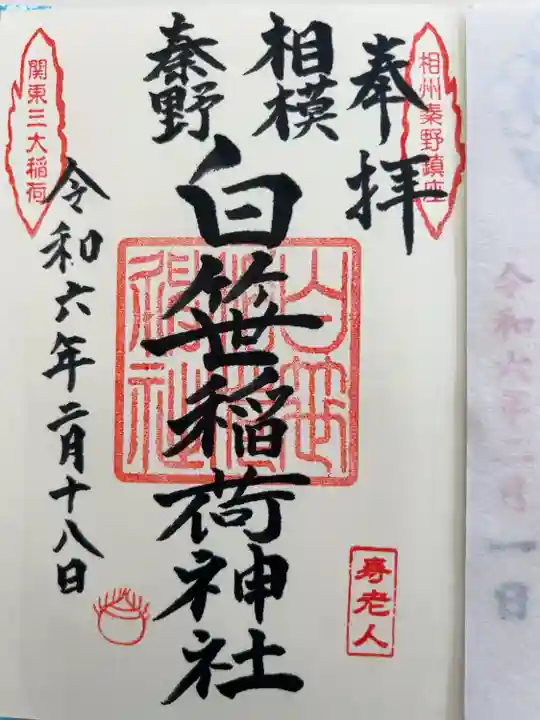 相州秦野鎮座
奉拝
相模
秦野
白笹稲荷神社
白笹
稲荷
神社
寿老人
関東三大稲荷
令和六年二月十八日
令和六年二月一日